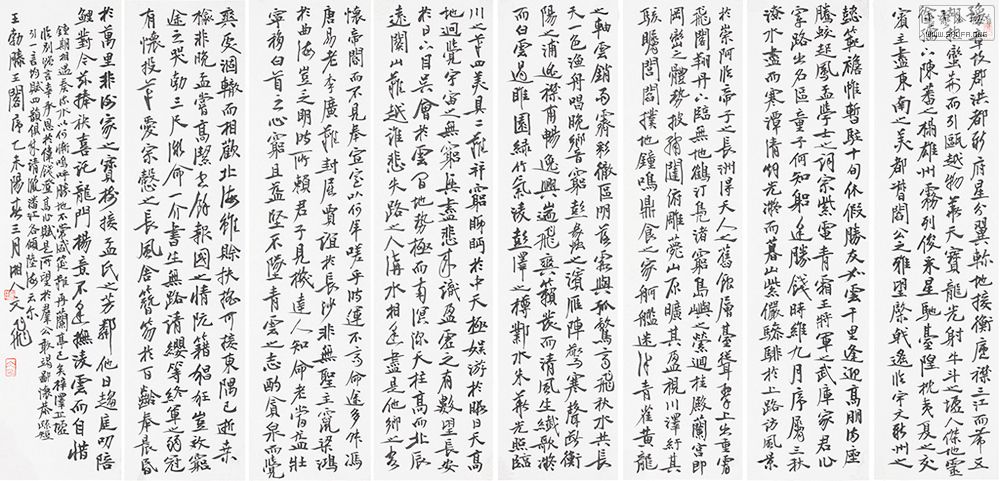 豫章故郡洪都新府星分翼軫地接衡廬襟三江而帶五
湖控蠻荊而引甌越物華天寶龍光射牛斗之墟人傑地靈
徐孺下陳蕃之榻雄州霧列俊采星馳臺隍枕夷夏之交
賓主盡東南之美都督閻公之雅望棨戟遙臨宇文新州之
懿範襜帷暫駐十旬休假勝友如雲千里逢迎高朋滿座
騰蛟起鳳孟學士之詞宗紫電青霜王將軍之武庫家君作
宰路出名區童子何知躬逢勝餞時維九月序屬三秋
潦水盡而寒潭清煙光凝而暮山紫儼驂騑於上路訪風景
於崇阿臨帝子之長洲得天人之舊館層巒聳翠上出重霄
飛閣翔丹下臨無地鶴汀鳧渚窮島嶼之縈迴桂殿蘭宮即
岡巒之體勢披繡闥俯雕甍山原曠其盈視川澤紆其
駭矚閭閻撲地鐘鳴鼎食之家舸艦迷津青雀黃龍
之軸雲銷雨霽彩徹區明落霞與孤鶩齊飛秋水共長
天一色漁舟唱晚響窮彭蠡之濱雁陣驚寒聲斷衡
陽之浦遙襟甫暢逸興遄飛爽籟發而清風生纖歌凝
而白雲遏睢園綠竹氣凌彭澤之樽鄴水朱華光照臨
川之筆四美具二難並窮睇眄於中天極娛遊於暇日天高
地迥覺宇宙之無窮興盡悲來識盈虛之有數望長安
於日下目吳會於雲間地勢極而南溟深天柱高而北辰
遠關山難越誰悲失路之人溝水相逢盡是他鄉之客
懷帝閽而不見奉宣室以何年嗟乎時運不齊命途多舛馮
唐易老李廣難封屈賈誼於長沙非無聖主竄梁鴻
於曲海豈乏明時所賴君子見機達人知命老當益壯
寧移白首之心窮且益堅不墜青雲之志酌貪泉而覺
爽處涸轍而相歡北海雖賒扶搖可接東隅已逝桑
榆非晚孟嘗高潔空餘報國之情阮籍猖狂豈效窮
途之哭勃三尺微命一介書生無路請纓等終軍之弱冠
有懷投筆愛宗愨之長風舍簪笏於百齡奉晨昏
於萬里非謝家之寶樹接孟氏之芳鄰他日趨庭叨陪
鯉對今茲捧袂喜託龍門楊意不逢撫凌雲而自惜
鍾期相遇奏流水以何慚嗚呼勝地不常盛筵難再蘭亭已矣梓澤丘墟
臨別贈言幸承恩於偉餞登高作賦是所望於群公敢竭鄙懷恭疏短
引一言均賦四韻俱成請灑潘江各傾陸海云爾
王勃滕王閣序乙未陽春三月湘人文